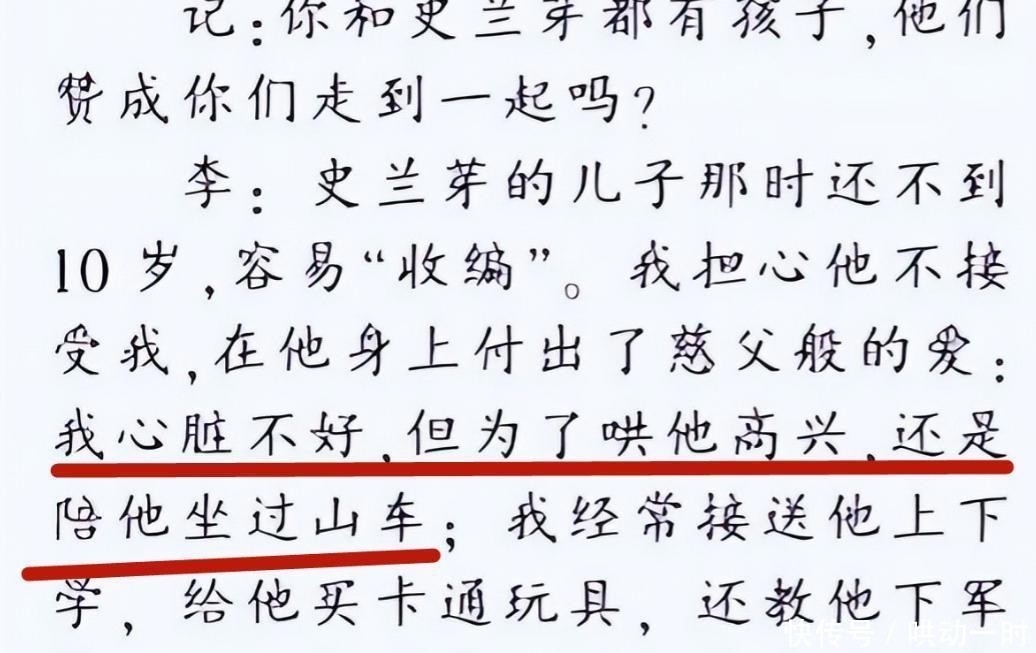 记：你和史兰芽都有孩子，他们
赞成你们走到一起吗？
李：史兰芽的儿子那时还不到
10岁，容易“收编”。我担心他不接
受我，在他身上付出了慈父般的爱：
我心脏不好，但为了哄他高兴，还是
陪他坐过山车；我经常接送他上下
学，给他买卡通玩具，还教他下军
快传号/哄动一时